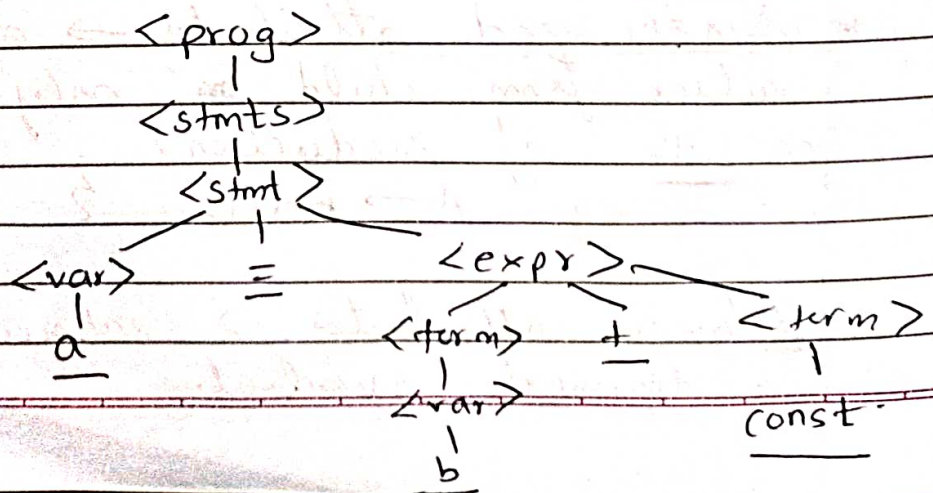 <prog>
<stmts>
<stmt>
<var> = <expr>
a <term> + <term>
<var> const
b